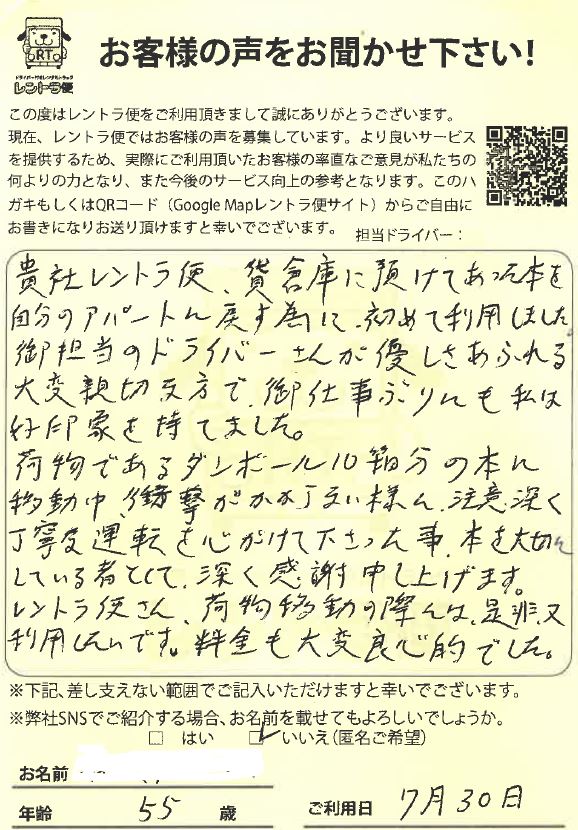 RT
ドライバー付きレンタルトラック
レントラ便
お客様の声をお聞かせ下さい!
この度はレントラ便をご利用頂きまして誠にありがとうございます。
現在、レントラ便ではお客様の声を募集しています。より良いサービス
を提供するため、実際にご利用頂いたお客様の率直なご意見が私たちの
何よりの力となり、また今後のサービス向上の参考となります。このハ
ガキもしくはQRコード（Google Mapレントラ便サイト）からご自由に
お書きになりお送り頂けますと幸いでございます。
担当ドライバー：
貴社レントラ便、貸倉庫に預けてあった本を
自分のアパートに戻す為に、初めて利用しました。
御担当のドライバーさんが優しさあふれる
大変親切な方で、御仕事ぶりにも私は
好印象を持てました。
荷物であるダンボール10箱分の本に
移動中、衝撃がかからない様に、注意深く
丁寧な運転を心がけて下さった事、本を大切に
している者として、深く感謝申し上げます。
レントラ便さん、荷物移動の際には、是非、又
利用したいです。料金も大変良心的でした。
※下記、差し支えない範囲でご記入いただけますと幸いでございます。
※弊社SNSでご紹介する場合、お名前を載せてもよろしいでしょうか。
□ はい ☑ いいえ（匿名ご希望）
お名前
年齢 55 歳 ご利用日 7月30日